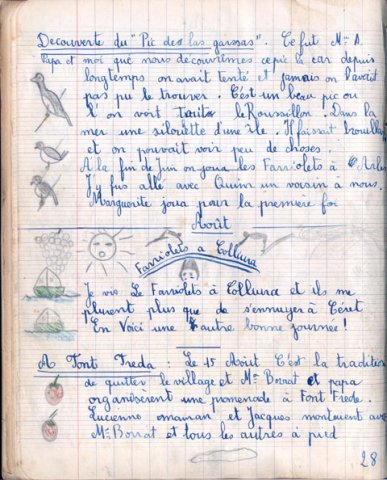 Decouverte du "Pic de las garsas". Ce fut Mr A.
Papa et moi que nous decouvrimes ce pic là car depuis
longtemps on avait tenté et jamais on l'avait
pas pu le trouver. C'est un beau pic ou
l'on voit tout le Roussillon. Dans la
mer une silouette d'une île. Il faisait
et on pouvait voir peu de choses.
A la fin de Juin on joua les Farriolets à
J'y fus allé avec un voisin à nous.
Marguerite joua pour la premiere foi
Août
Farriolets a Collura
Je vis Le Farriolets à Collura et ils me
plurent plus que de s'ennuyer à Céret
En Voici une autre bonne journée!
A Font Freda : Le 15 Août C'est la tradition
de quitter le village et Mr Borrat et papa
organisèrent une promenade à Font Frede.
Lucienne maman et Jacques montèrent avec
Mr Borrat et tous les autres à pied
28